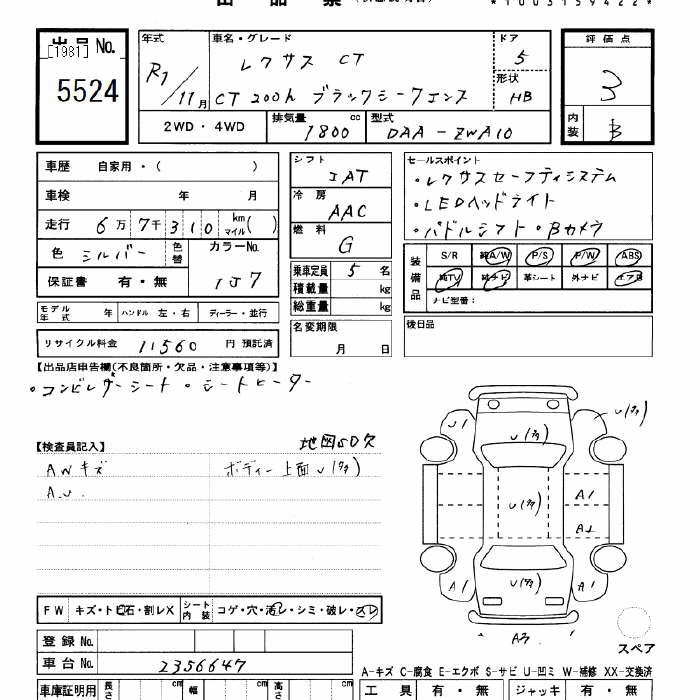 出品票
*1003159422*
出品 No. [1981] 5524
年式 R1/11月
車名・グレード レクサス CT
CT 200h ブラックシークエンス
ドア 5
形状 HB
評価点 3
内装 B
2WD・4WD 排気量 1800 cc 型式 DAA-ZWA10
車歴 自家用・( )
車検 年 月
走行 6万7千310 km マイル( )
色 シルバー 色替 カラーNo. 1J7
保証書 有・無
モデル年式 年 ハンドル 左・右 ディーラー・並行
リサイクル料金 11560 円 預託済
シフト IAT
冷房 AAC
燃料 G
乗車定員 5 名
積載量 kg
総重量 kg
名変期限 月 日
セールスポイント
・レクサスセーフティシステム
・LEDヘッドライト
・パドルシフト・Bカメラ
装備品 S/R 純A/W P/S P/W ABS
純TV 純ナビ 革シート 外ナビ エアB
ナビ型番:
後日品
【出品店申告欄(不良箇所・欠品・注意事項等)】
・コンビレザーシート・シートヒーター
地図SD欠
【検査員記入】
AWキズ ボディー上面U(タタ)
A.U.
U1 U(タタ) U(タタ)
U(タタ) A1
A2
U(タタ) A1 A1
A3
スペア
FW キズ・ト石・割レX シート内装 コゲ・穴・汚レ・シミ・破レ・スレ
登録 No.
車台 No. 2356647
A-キズ C-腐食 E-エクボ S-サビ U-凹ミ W-補修 XX-交換済
車庫証明用 長さ cm 幅 cm 高さ cm
工具 有・無 ジャッキ 有・無